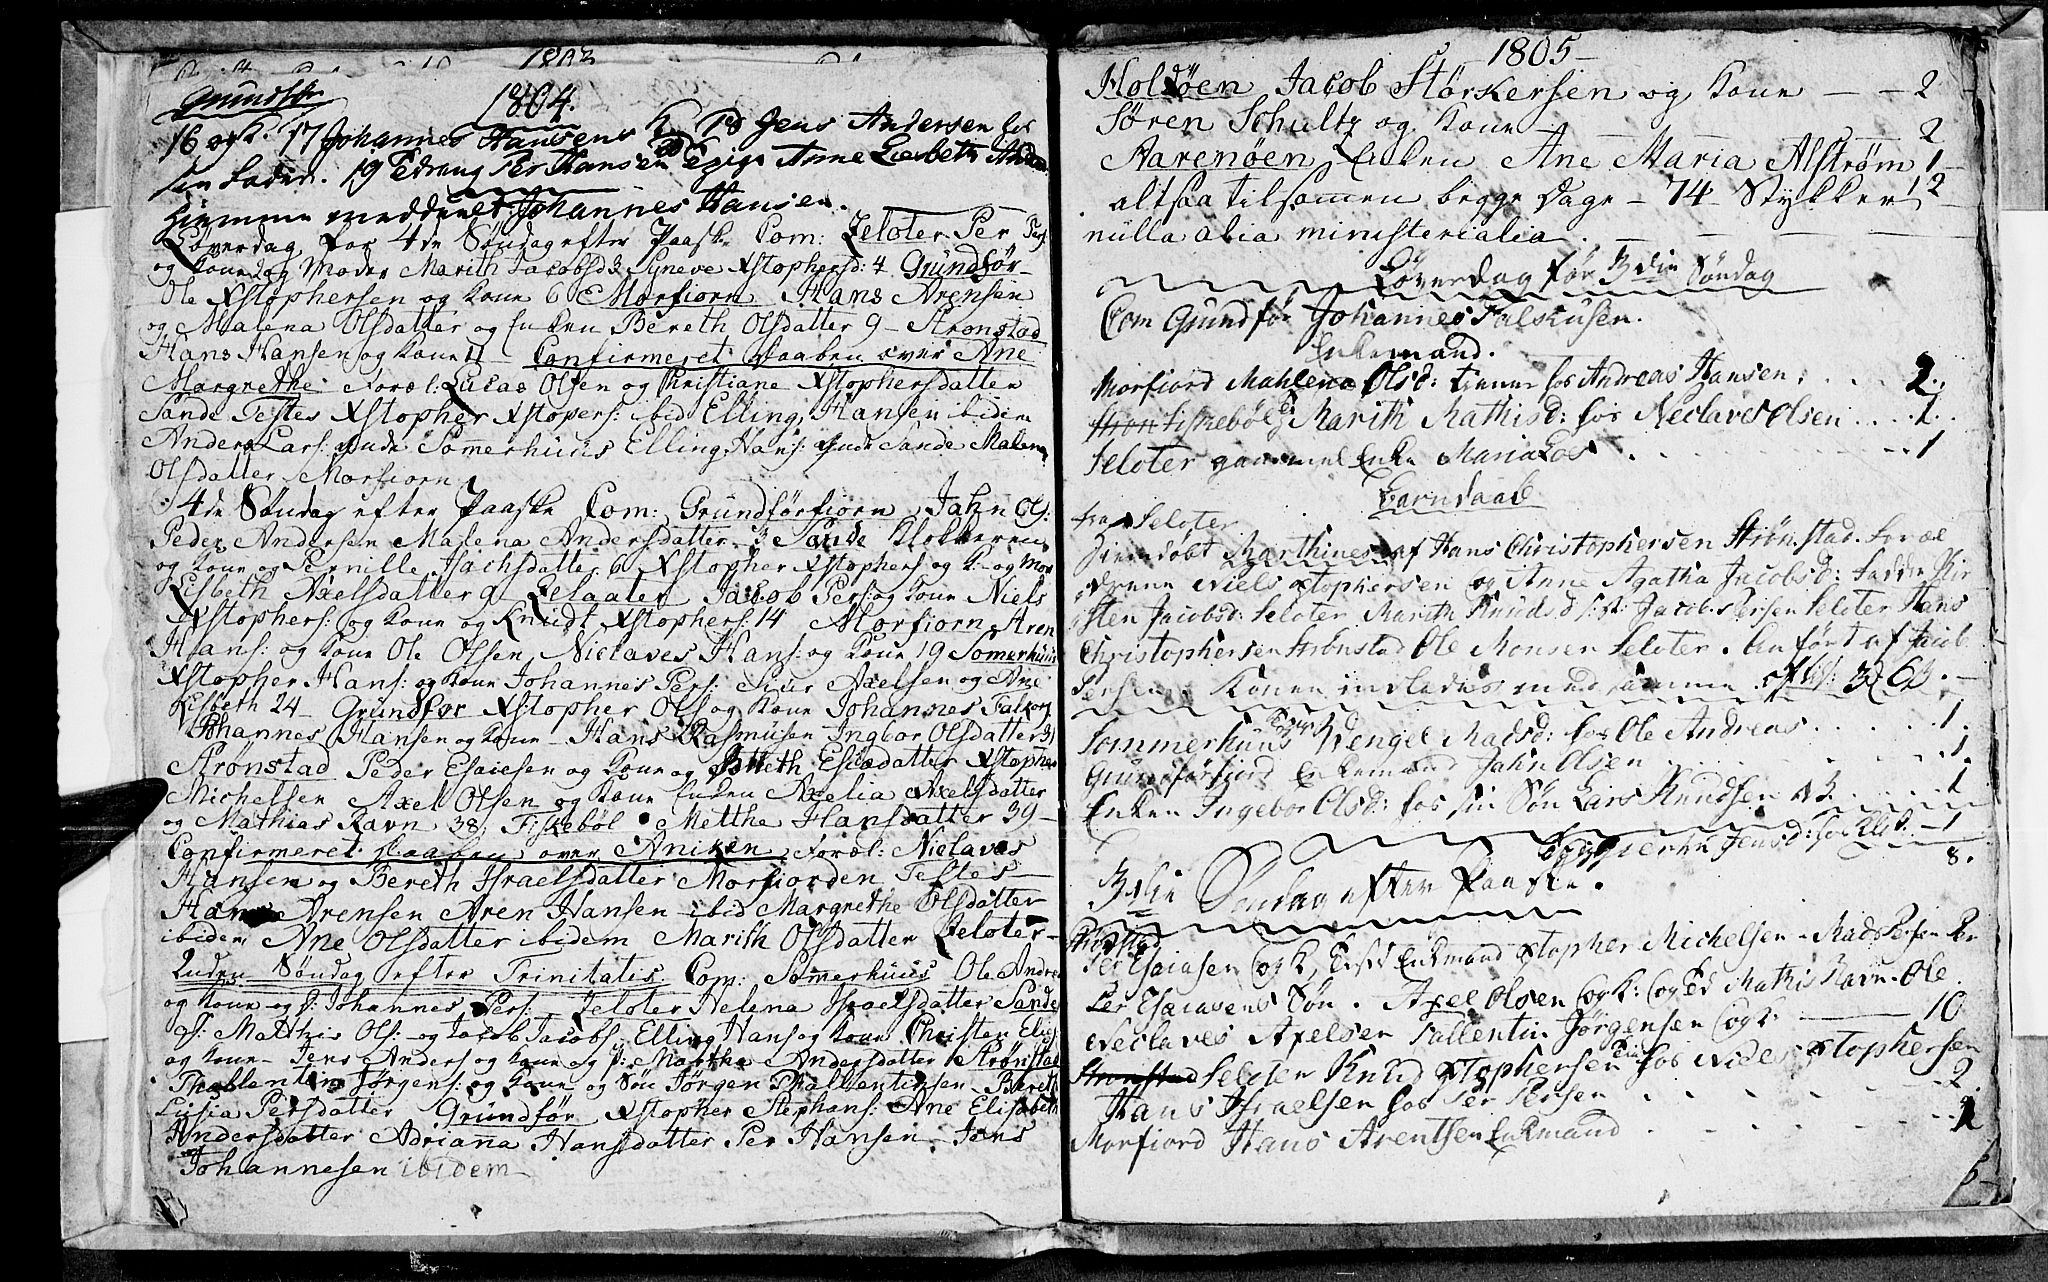 1803
Grundför
1804.
16 og K: 17 Johannes Hansens 18 Jens Andersen hos
sin Fader. 19 Per Hansen Anne Liesbeth
Hiemme meddeelt Johannes Hansen.
Löverdag for 4de Söndag efter Paaske Com: Seloter Per Pers:
og Kone og Moder Marith Jacobsd 3 Syneve Xstophersd: 4 Grundför
Ole Xstophersen og Kone 6 Morfiorn Hans Arensen
og Malena Olsdatter og Enken Bereth Olsdatter 9 - Strönstad
Hans Hansen og Kone 11 Confirmeret Daaben over Ane
Margrethe Foræl: Lucas Olsen og Christiane Xstophersdatter
Sande Testes Xstopher Xstopers: ibid Elling Hansen ibidem
Anders Lars: Somerhuus Elling Hans: Sande Malena
Olsdatter Morfiorn
4de Söndag efter Paaske Com: Grundförfiorn Jahn Ols:
Peder Andersen Malena Andersdatter 3 Sande Klokkeren
og Kone og Pernille Jachsdatter 6 Xstopher Xstophers og K: og Mor
Lisbeth Axelsdatter 9 Selaater Jacob Pers: og Kone Niels
Xstophers: og Kone og Knudt Xstophers: 14 Morfiorn Aren
Hans: og Kone Ole Olsen Niclaves Hans: og Kone 19 Somerhuus
Xstopher Hans: og Kone Johannes Pers: Siur Axelsen og Ane
Lisbeth 24 - Grundför Xstopher Ols og Kone Johannes Falkors
Johannes Hansen og Kone - Hans Rasmusen Ingbor Olsdatter 31
Strönstad Peder Esaiesen og Kone og Bereth Esaiedatter Xstopher
Michelsen Axel Olsen og Kone Enken Axelia Axelsdatter
og Mathias Ravn 38 Fiskeböl Metthe Hansdatter 39 -
Confirmeret Daaben over Aniken Foræl: Niclaves
Hansen og Bereth Israelsdatter Morfiorden Testes
Hans Arensen Aren Hansen ibid Margrethe Olsdatter
ibidem Ane Olsdatter ibidem Marith Olsdatter Seloter
2uden Söndag efter Trinitatis Com: Somerhuus Ole Andre
og Kone og P: Johannes Pers: Seloter Helena Israelsdatter Sande
P: Matthis Ols: og Jacob Jacobs: Elling Hans og Kone Christen Elies
og Kone - Jens Anders og Kone og P: Martha Andersdatter Strönstad
Thallentin Jörgens: og Kone og Sön Jörgen Thallentinsen Bereth
Lusia Persdatter Grundför Xstopher Stephans: Ane Elisabeth
Andersdatter Adriana Hansdatter Per Hansen Jens
Johannesen ibidem
1805
Holdöen Jacob Störkersen og Kone - - 2
Sören Schultz og Kone 2
Aarenöen Enken Ane Maria Alström 1
altsaa tilsamen begge Dage - 74 Stykker 12
nulla alia ministerialia.
Löverdag før 3die Söndag
Com Grundför Johannes Falkusen.
Enkemand.
Morfiord Mahlena Olsd: tiener hos Andreas Hansen, . . . . 2.
Fiskeböl Marith Mathisd: hos Neclaves Olsen . . . . 1.
Seloter gammel Enke Maria . . . . 1
Barnedaab
fra Seloter
Hiemdöbt Marthines af Hans Christophersen Strönstad. Foræl
drene Niels Xtophersen og Anne Agatha Jacobsd: Faddere Kir
sten Jacobsd: Seloter Marith Knudsd Jacob Persen Seloter Hans
Christophersen Strönstad Ole Monsen Seloter. Anfört af Jacob
Persen. Konen indledes med samme
Sommerhuus Wengel Madsd: hos Ole Andreas . . . . 1.
Grundförfiord Enkemand Jahn Olsen . . . . 1.
Enken Ingebor Olsd: hos sin Sön Lars Knudsen . . . . 1
Jensd: 1
8.
3die Söndag efter Paaske.
Strönstad
Per Esaiasen og K, Enkmand Xtopher Michelsen - Mads Persen Per
Per Esaiasens Sön. Axel Olsen og K: Mathis Ravn - Ole
Neclaves Axelsen Fallentin Jörgensen og K 10
Seloter Knud Xtophersen hos Nides Xtophersen
Hans Israelsen hos Per Persen . . . . 2.
Morfiord Hans Arentsen Enkmand . . . . 1